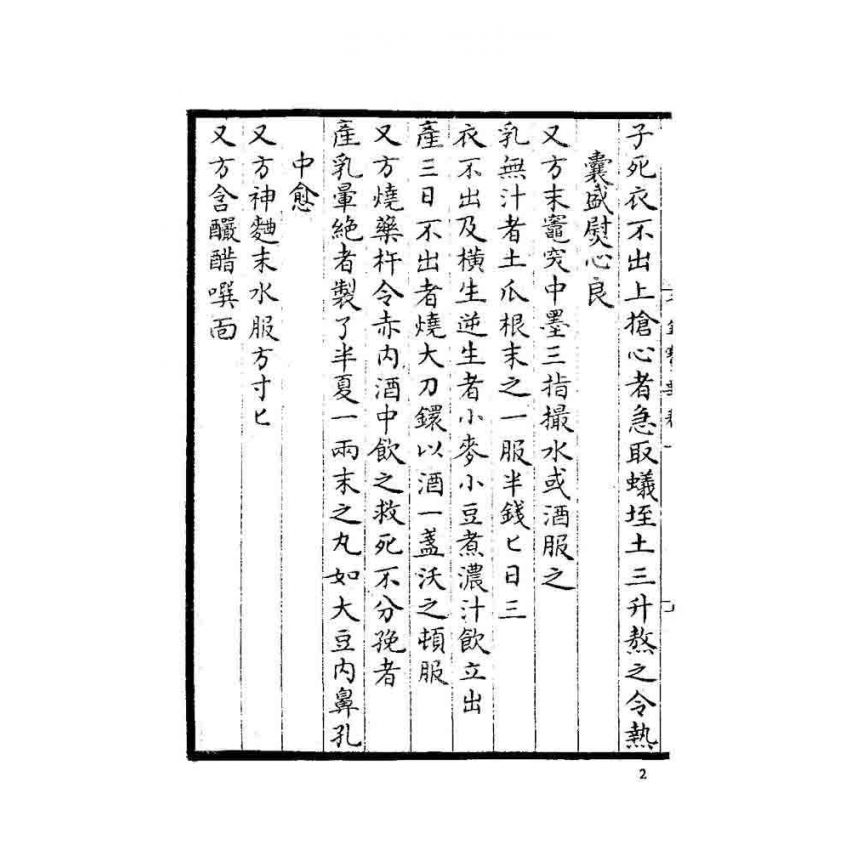 子死衣不出上搶心者急取蟻垤土三升熬之令熱
囊盛熨心良
又方末竈突中墨三指撮水或酒服之
乳無汁者土瓜根末之一服半錢匕日三
衣不出及橫生逆生者小麥小豆煮濃汁飲立出
產三日不出者燒大刀鐶以酒一盞沃之頓服
又方燒藥杵令赤內酒中飲之救死不分㝃者
產乳暈絕者製了半夏一兩末之丸如大豆內鼻孔
中愈
又方神麴末水服方寸匕
又方含釅醋噀面
2